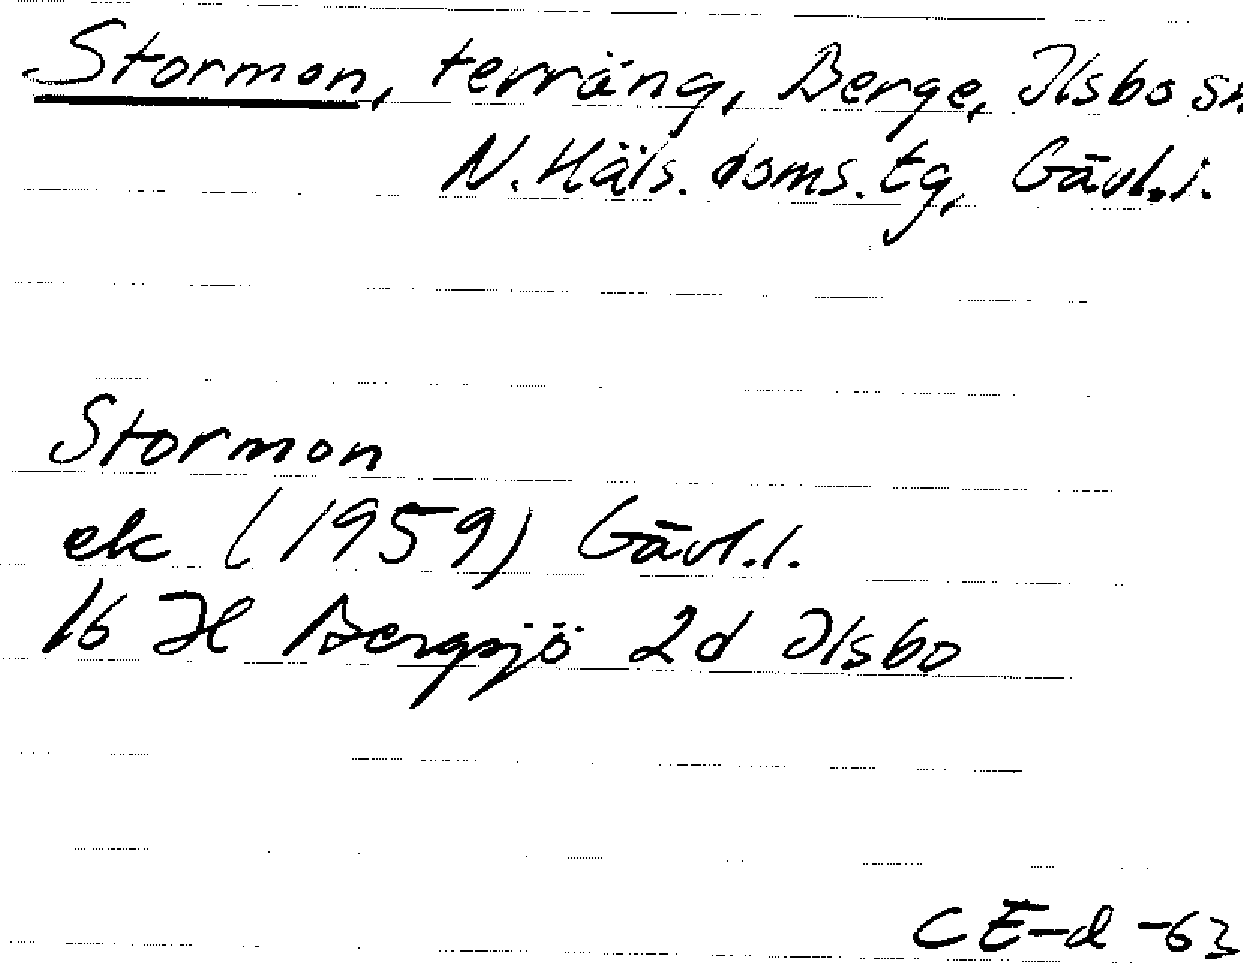 Stormon, terräng, Berge, Ilsbo sn
N. Häls. doms. tg, Gävl. l.
Stormon
ek (1959) Gävl. l.
16 H Bergsjö 2d Ilsbo
CE-d -63